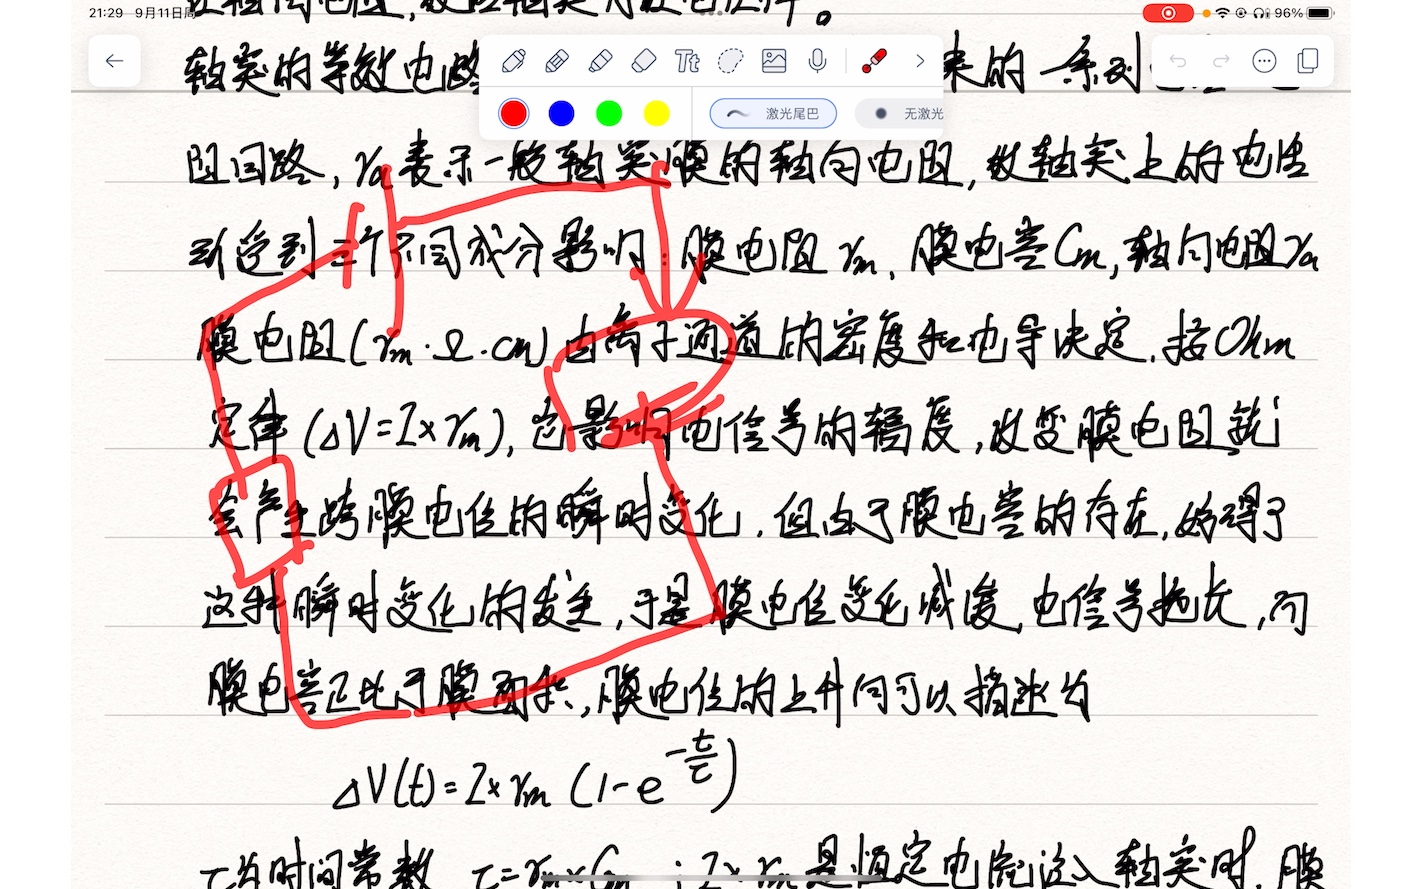 21:29 9月11日周
96%
轴突的等效电路 来的一系列
Tt
激光尾巴 无激光
阻回路,ra表示一般轴突膜的轴向电阻,故轴突上的电流
到三个不同成分影响:膜电阻rm、膜电容Cm,轴向电阻ra
膜电阻(rm·Ω·cm)由离子通道的密度和电导决定.按Ohm
定律(ΔV=I×rm),它影响电信号的辐度,改变膜电阻就
会产生跨膜电位的瞬时变化.但由于膜电容的存在,妨碍了
这种瞬时变化的发生,于是膜电位变化减慢,电信号拖长,而
膜电容正比于膜面积,膜电位的上升向可以描述为
ΔV(t)=I×rm(1-e^-t/τ)
τ为时间常数 τ=rm×Cm ; I×rm是恒定电流注入轴突时,膜